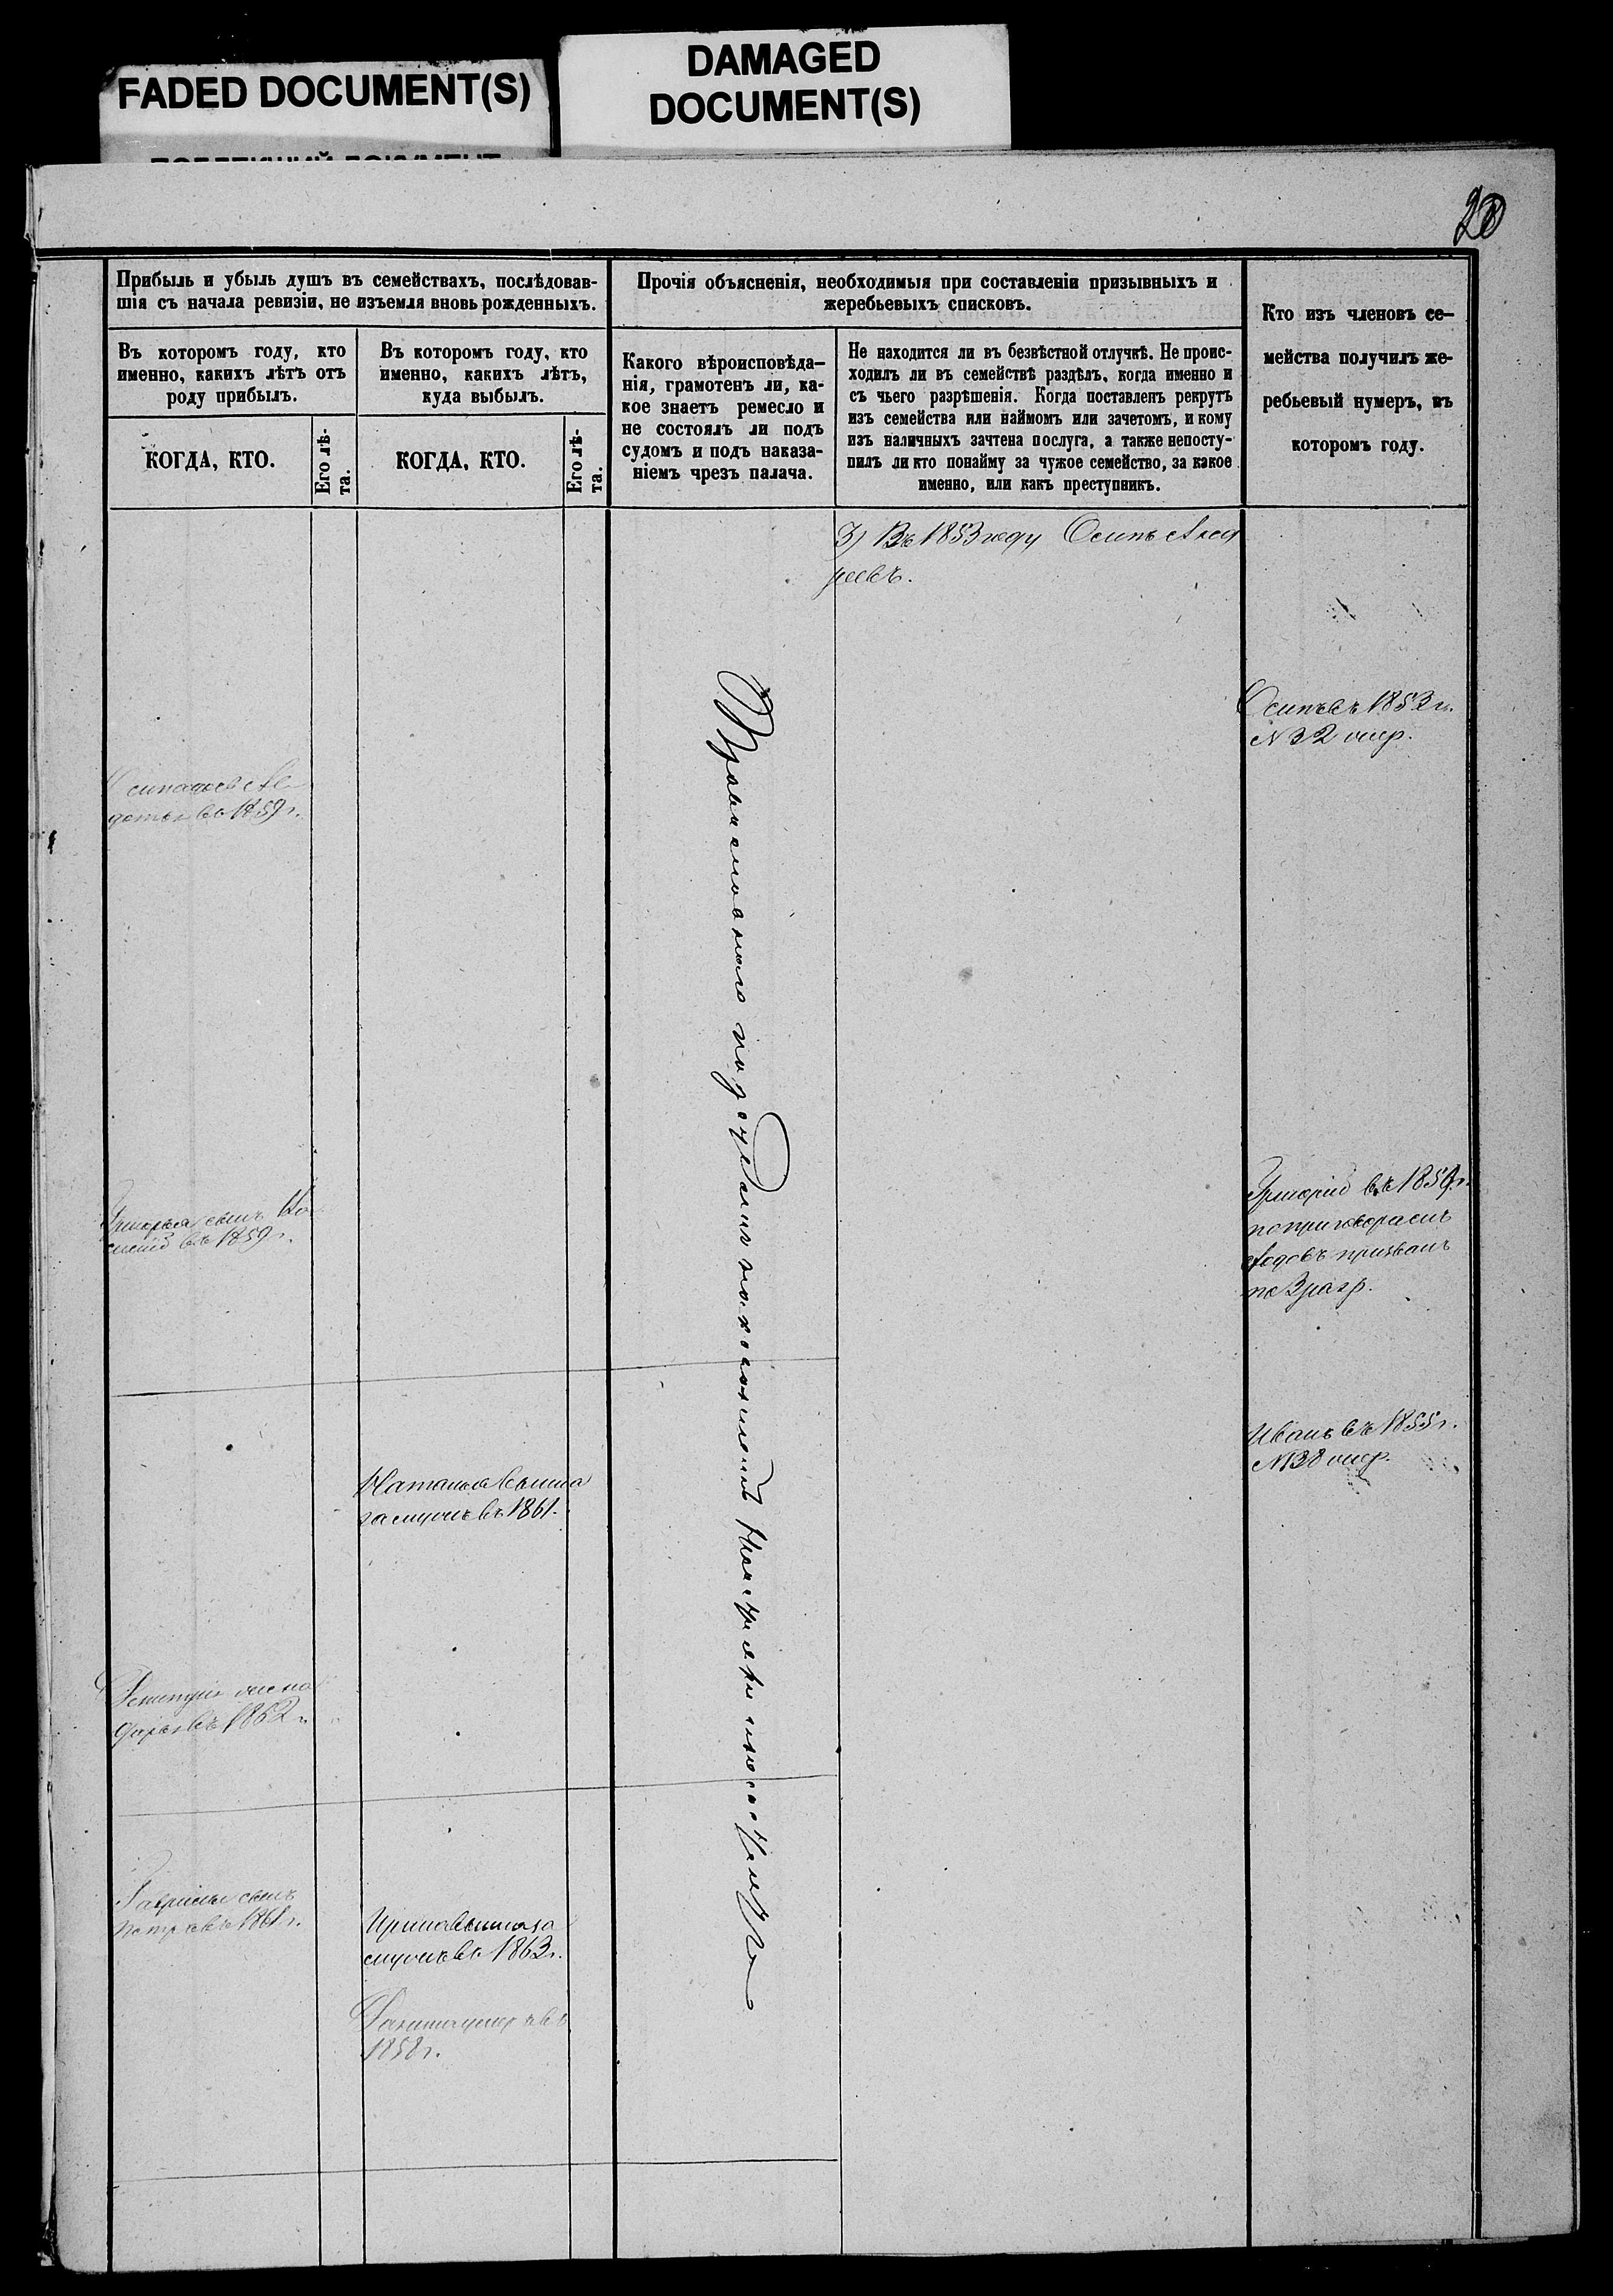 FADED DOCUMENT(S)
DAMAGED
DOCUMENT(S)
20
Прибыль и убыль душъ въ семействахъ, послѣдовав-
шія съ начала ревизіи, не изъемля вновь рожденныхъ.
Въ которомъ году, кто
именно, какихъ лѣтъ отъ
роду прибылъ.
Въ которомъ году, кто
именно, какихъ лѣтъ,
куда выбылъ.
КОГДА, КТО.
Его лѣ-
та.
КОГДА, КТО.
Его лѣ-
та.
Прочія объясненія, необходимыя при составленіи призывныхъ и
жеребьевыхъ списковъ.
Какого вѣроисповѣда-
нія, грамотенъ ли, ка-
кое знаетъ ремесло и
не состоялъ ли подъ
судомъ и подъ наказа-
ніемъ чрезъ палача.
Не находится ли въ безвѣстной отлучкѣ. Не проис-
ходилъ ли въ семействѣ раздѣлъ, когда именно и
съ чьего разрѣшенія. Когда поставленъ рекрутъ
изъ семейства или наймомъ или зачетомъ, и кому
изъ наличныхъ зачтена послуга, а также непосту-
пилъ ли кто понайму за чужое семейство, за какое
именно, или какъ преступникъ.
Кто изъ членовъ се-
мейства получилъ же-
ребьевый нумеръ, въ
которомъ году.
3) Въ 1853 году Осипъ Анд
реевъ.
Осипъ въ 1853 г.
№ 32
въ 1859 г.
Григорья сынъ
въ 1859 г.
Григорій въ 1859 г.
по приговорамъ
призванъ
Иванъ въ 1855 г.
№ 38
Наталья вышла
замужъ въ 1861.
въ 1862 г.
Гаврилы сынъ
Петръ въ 1861 г.
Ирина вышла за
мужъ въ 1863 г.
1858 г.